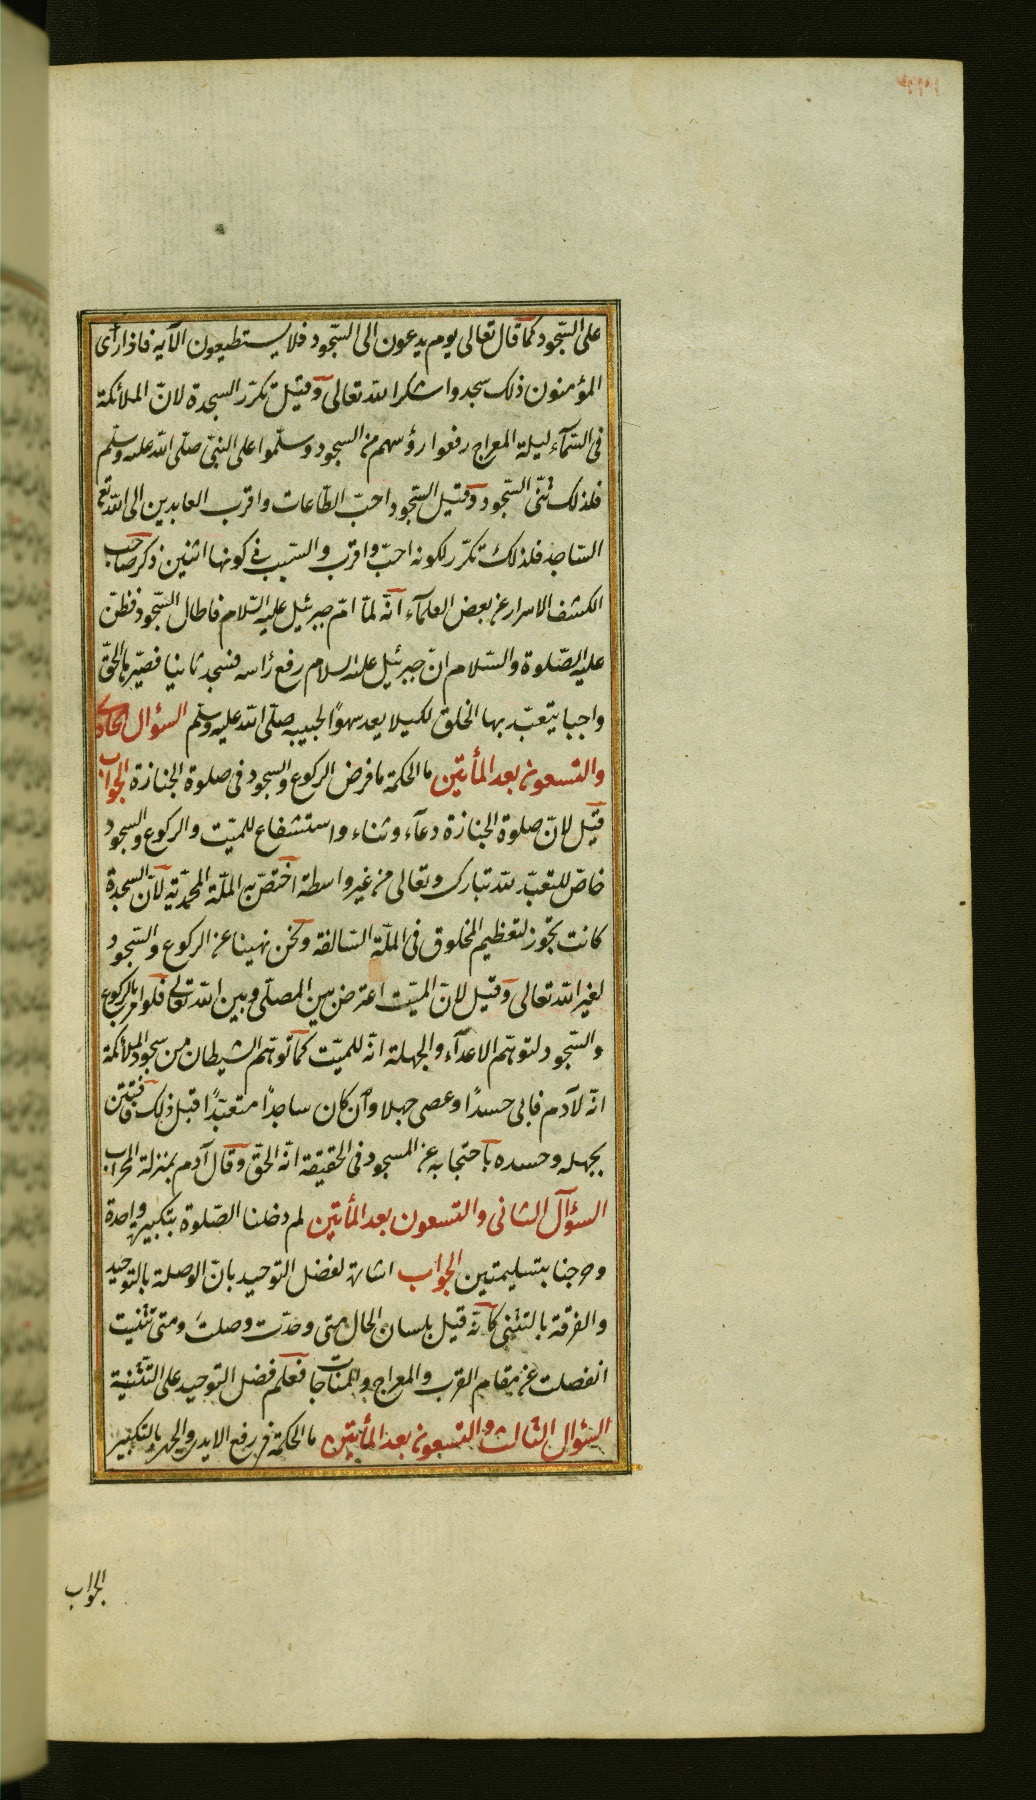 على السّجود كما قال تعالى يوم يدعون الى السّجود فلا يستطيعون الآيه فاذا رأى
المؤمنون ذلك سجدوا شكرا لله تعالى وقيل تكرّر السجدة لانّ الملائكة
فى السّمآء ليلة المعراج رفعوا رؤسهم من السجود وسلّموا على النبىّ صلّى الله عليه وسلّم
فلذلك ثنّى السّجود وقيل السّجود احبّ الطّاعات واقرب العابدين الى الله تع
السّاجد فلذلك تكرّر لكونه احبّ واقرب والسّبب في كونها اثنين ذكر صاحب
الكشف الاسرار عن بعض العلمآء انّه لمّا امّ جبرئيل عليه السّلام فاطال السّجود فظنّ
عليه الصّلوة والسّلام انّ جبرئيل عليه السلام رفع رأسه فسجد ثانيا فصيّرها الحقّ
واجبا يتعبّد بها الخلق لكيلا يعد سهوًا لحبيبه صلّى الله عليه وسلّم السؤال الحادى
والتسعون بعد المأتين ما الحكمة ما فرض الركوع والسجود فى صلوة الجنازة الجواب
قيل لانّ صلوة الجنازة دعآء وثناء واستشفاع للميّت والركوع والسجود
خاصّ للتعبّد لله تبارك وتعالى من غير واسطة اختصّ به الملّة المحمّديّة لانّ السجدة
كانت تجوز لتعظيم المخلوق فى الملّة السّالفة ونحن نهينا عن الركوع والسّجود
لغير الله تعالى وقيل لانّ الميّت اعترض بين المصلّى وبين الله تعالى فلو امر بالركوع
والسّجود لتوهّم الاعدآء والجهلة انّه للميّت كما توهّم الشيطان من سجود الملائكة
انّه لآدم فابى حسدًا وعصى جهلا وان كان ساجدًا متعبّدًا قبل ذلك فافتتن
بجهله وحسده باحتجابه عن المسجود فى الحقيقة انّه الحقّ وقال آدم بمنزلة المحراب
السؤال الثانى والتسعون بعد المأتين لم دخلنا الصّلوة بتكبيرة واحدة
وخرجنا بتسليمتين الجواب اشارة لفضل التوحيد بانّ الوصلة بالتوحيد
والفرقة بالتثنى كانّه قيل بلسان الحال متى وحدّت وصلت ومتى تثنيت
انفصلت عن مقام القرب والمعراج والمناجات فعلم فضل التوحيد على التثنية
السؤال الثالث والتسعون بعد المأتين ما الحكمة فى رفع الايدى والجهر بالتكبير
الجواب